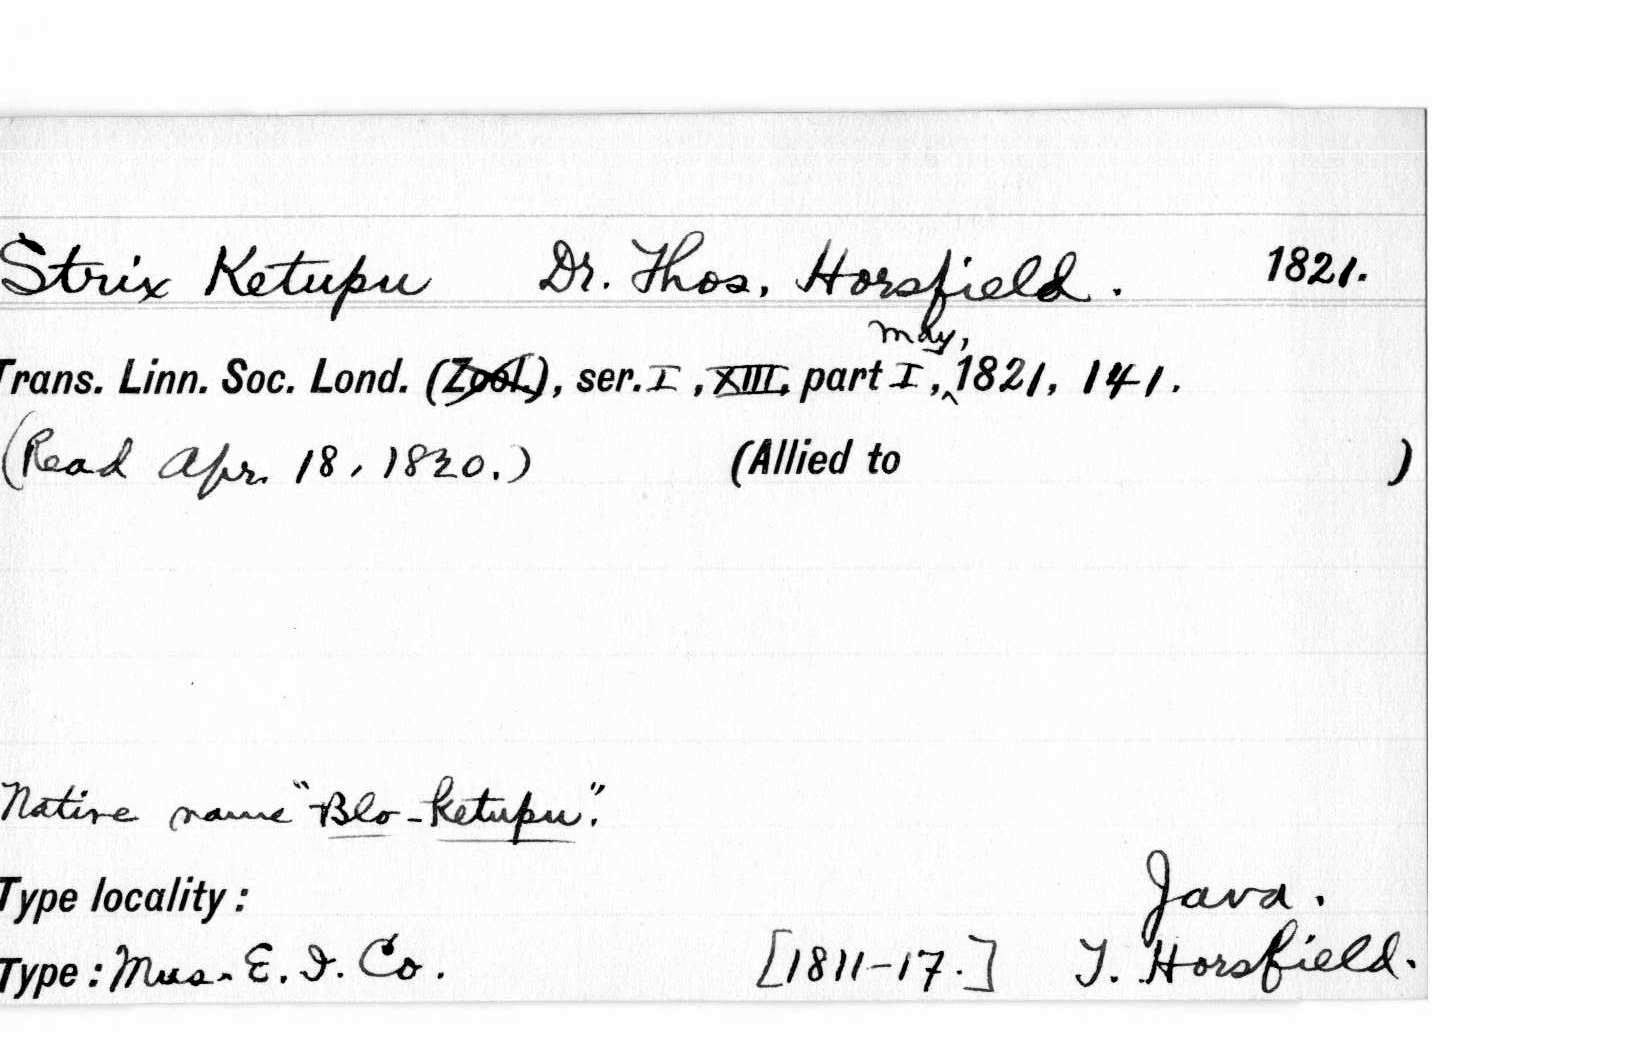 Strix Ketupu Dr. Thos. Horsfield. 1821.
May,
Trans. Linn. Soc. Lond. (Zool.), ser. I, XIII, part I, ^1821, 141.
(Read Apr. 18, 1820.) (Allied to )
Native name "Blo-Ketupu".
Type locality: Java.
Type: Mus. E. I. Co. [1811-17.] T. Horsfield.